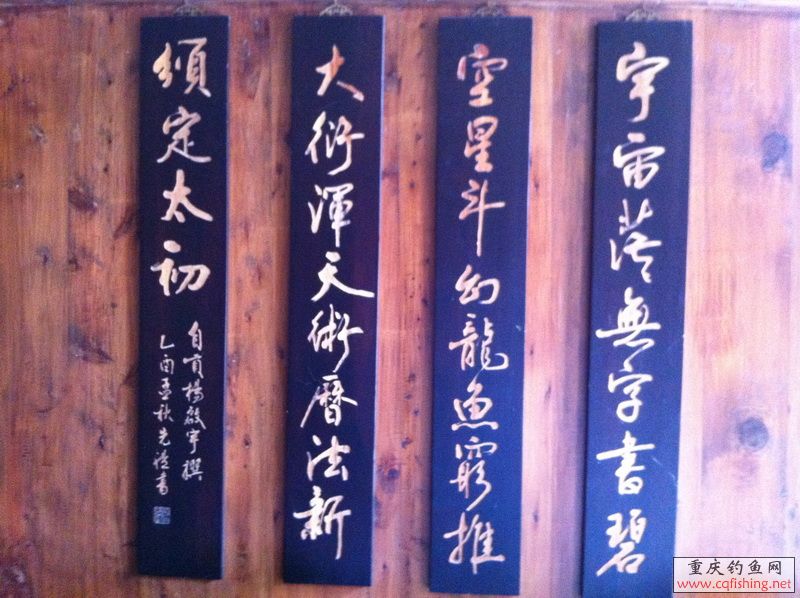 宇宙茫々無字書碧
空星斗幻龍魚窮推
大衍渾天術曆法新
頒定太初
自貢楊啟宇撰
乙酉孟秋先書
重庆钓鱼网
www.cqfishing.net